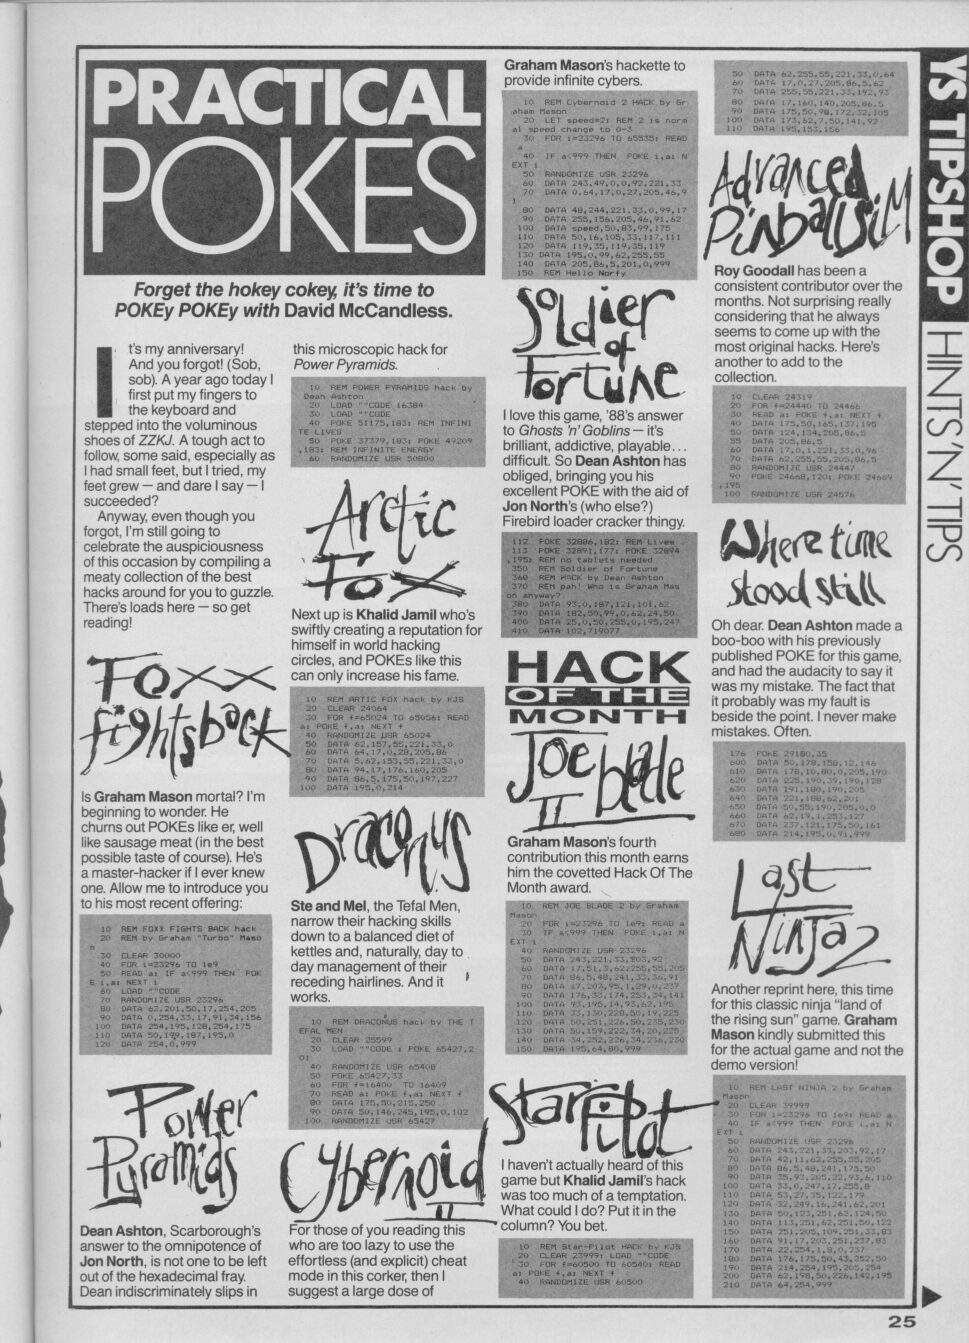 PRACTICAL
POKES
Forget the hokey cokey, it's time to
POKEy POKEy with David McCandless.
It's my anniversary!
And you forgot! (Sob,
sob). A year ago today I
first put my fingers to
the keyboard and
stepped into the voluminous
shoes of ZZKJ. A tough act to
follow, some said, especially as
I had small feet, but I tried, my
feet grew — and dare I say — I
succeeded?
Anyway, even though you
forgot, I'm still going to
celebrate the auspiciousness
of this occasion by compiling a
meaty collection of the best
hacks around for you to guzzle.
There's loads here — so get
reading!
Foxx
fightsback
Is Graham Mason mortal? I'm
beginning to wonder. He
churns out POKEs like er, well
like sausage meat (in the best
possible taste of course). He's
a master-hacker if I ever knew
one. Allow me to introduce you
to his most recent offering:
10 REM FOXX FIGHTS BACK hack
20 REM by Graham "Turbo" Maso
n
30 CLEAR 30000
40 FOR i=23296 TO 1e9
50 READ a: IF a<999 THEN POK
E i,a: NEXT i
60 LOAD ""CODE
70 RANDOMIZE USR 23296
80 DATA 62,201,50,17,254,205
90 DATA 0,254,33,17,91,34,156
100 DATA 254,195,128,254,175
110 DATA 50,199,187,195,0
120 DATA 254,0,999
Power
Pyramids
Dean Ashton, Scarborough's
answer to the omnipotence of
Jon North, is not one to be left
out of the hexadecimal fray.
Dean indiscriminately slips in
this microscopic hack for
Power Pyramids.
10 REM POWER PYRAMIDS hack by
Dean Ashton
20 LOAD ""CODE 16384
30 LOAD ""CODE
40 POKE 51175,183: REM INFINI
TE LIVES
50 POKE 37379,183: POKE 49209
,183: REM INFINITE ENERGY
60 RANDOMIZE USR 50800
Arctic
Fox
Next up is Khalid Jamil who's
swiftly creating a reputation for
himself in world hacking
circles, and POKEs like this
can only increase his fame.
10 REM ARTIC FOX hack by KJS
20 CLEAR 24064
30 FOR f=65024 TO 65056: READ
a: POKE f,a: NEXT f
40 RANDOMIZE USR 65024
50 DATA 62,157,55,221,33,0
60 DATA 64,17,0,28,205,86
70 DATA 5,62,153,55,221,33,0
80 DATA 94,17,176,160,205
90 DATA 86,5,175,50,197,227
100 DATA 195,0,214
Draconus
Ste and Mel, the Tefal Men,
narrow their hacking skills
down to a balanced diet of
kettles and, naturally, day to
day management of their
receding hairlines. And it
works.
10 REM DRACONUS hack by THE T
EFAL MEN
20 CLEAR 25599
30 LOAD ""CODE : POKE 65427,2
01
40 RANDOMIZE USR 65408
50 POKE 65427,33
60 FOR f=16400 TO 16409
70 READ a: POKE f,a: NEXT f
80 DATA 175,50,215,250
90 DATA 50,146,245,195,0,102
100 RANDOMIZE USR 65427
Cybernoid
II
For those of you reading this
who are too lazy to use the
effortless (and explicit) cheat
mode in this corker, then I
suggest a large dose of
Graham Mason's hackette to
provide infinite cybers.
10 REM Cybernoid 2 HACK by Gr
aham Mason
20 LET speed=2: REM 2 is norm
al speed change to 0-3
30 FOR i=23296 TO 65535: READ
a
40 IF a<999 THEN POKE i,a: N
EXT i
50 RANDOMIZE USR 23296
60 DATA 243,49,0,0,92,221,33
70 DATA 0,64,17,0,27,205,46,9
1
80 DATA 48,244,221,33,0,99,17
90 DATA 255,156,205,46,91,62
100 DATA speed,50,83,99,175
110 DATA 50,16,105,33,117,111
120 DATA 119,35,119,35,119
130 DATA 195,0,99,62,255,55
140 DATA 205,86,5,201,0,999
150 REM Hello Norfy
Soldier
of
Fortune
I love this game, '88's answer
to Ghosts 'n' Goblins — it's
brilliant, addictive, playable...
difficult. So Dean Ashton has
obliged, bringing you his
excellent POKE with the aid of
Jon North's (who else?)
Firebird loader cracker thingy.
112 POKE 32886,182: REM Lives
113 POKE 32891,177: POKE 32894
,195: REM no tablets needed
350 REM Soldier of Fortune
360 REM HACK by Dean Ashton
370 REM pah! Who is Graham Mas
on anyway?
380 DATA 93,0,187,121,101,62
390 DATA 182,50,99,0,62,24,50
400 DATA 25,0,50,255,0,195,247
410 DATA 102,719077
HACK
OF THE
MONTH
Joe blade
II
Graham Mason's fourth
contribution this month earns
him the covetted Hack Of The
Month award.
10 REM JOE BLADE 2 by Graham
Mason
20 FOR i=23296 TO 1e9: READ a
30 IF a<999 THEN POKE i,a: N
EXT i
40 RANDOMIZE USR 23296
50 DATA 243,221,33,203,92
60 DATA 17,51,3,62,255,55,205
70 DATA 86,5,48,241,33,36,91
80 DATA 17,207,95,1,29,0,237
90 DATA 176,33,174,253,34,141
100 DATA 93,195,14,93,62,195
110 DATA 33,130,228,50,19,225
120 DATA 50,251,226,50,235,230
130 DATA 50,159,222,34,20,225
140 DATA 34,252,226,34,236,230
150 DATA 195,64,86,999
Star Pilot
I haven't actually heard of this
game but Khalid Jamil's hack
was too much of a temptation.
What could I do? Put it in the
column? You bet.
10 REM Star-Pilot HACK by KJS
20 CLEAR 23999: LOAD ""CODE
30 FOR f=60500 TO 60540: READ
a: POKE f,a: NEXT f
40 RANDOMIZE USR 60500
50 DATA 62,255,55,221,33,0,64
60 DATA 17,0,27,205,86,5,62
70 DATA 255,55,221,33,192,93
80 DATA 17,160,140,205,86,5
90 DATA 175,50,98,172,32,105
100 DATA 173,62,7,50,141,92
110 DATA 195,153,156
Advanced
Pinball Sim
Roy Goodall has been a
consistent contributor over the
months. Not surprising really
considering that he always
seems to come up with the
most original hacks. Here's
another to add to the
collection.
10 CLEAR 24319
20 FOR f=24440 TO 24466
30 READ a: POKE f,a: NEXT f
40 DATA 175,50,165,137,195
50 DATA 124,134,205,86,5
55 DATA 205,86,5
60 DATA 17,0,1,221,33,0,96
70 DATA 62,255,55,205,86,5
80 RANDOMIZE USR 24447
90 POKE 24668,120: POKE 24669
,195
100 RANDOMIZE USR 24576
Where time
stood still
Oh dear. Dean Ashton made a
boo-boo with his previously
published POKE for this game,
and had the audacity to say it
was my mistake. The fact that
it probably was my fault is
beside the point. I never make
mistakes. Often.
176 POKE 29180,35
600 DATA 50,178,158,12,146
610 DATA 178,10,80,0,205,190
620 DATA 225,190,39,190,128
630 DATA 191,180,190,205
640 DATA 221,188,62,201
650 DATA 50,55,190,205,0,0
660 DATA 62,19,1,253,127
670 DATA 237,121,175,50,161
680 DATA 214,195,0,91,999
Last
Ninja 2
Another reprint here, this time
for this classic ninja "land of
the rising sun" game. Graham
Mason kindly submitted this
for the actual game and not the
demo version!
10 REM LAST NINJA 2 by Graham
Mason
20 CLEAR 39999
30 FOR i=23296 TO 1e9: READ a
40 IF a<999 THEN POKE i,a: N
EXT i
50 RANDOMIZE USR 23296
60 DATA 243,221,33,203,92,17
70 DATA 42,11,62,255,55,205
80 DATA 86,5,48,241,175,50
90 DATA 35,93,205,22,93,6,110
100 DATA 33,0,247,17,255,8
110 DATA 53,27,35,122,179
120 DATA 32,249,16,241,62,201
130 DATA 50,123,251,62,124,50
140 DATA 113,251,62,251,50,122
150 DATA 251,205,109,251,33,83
160 DATA 91,17,203,251,237,83
170 DATA 22,254,1,8,0,237
180 DATA 176,175,50,43,252,50
190 DATA 214,254,195,205,254
200 DATA 62,198,50,226,142,195
210 DATA 64,254,999
YS TIPSHOP HINTS 'N' TIPS
25